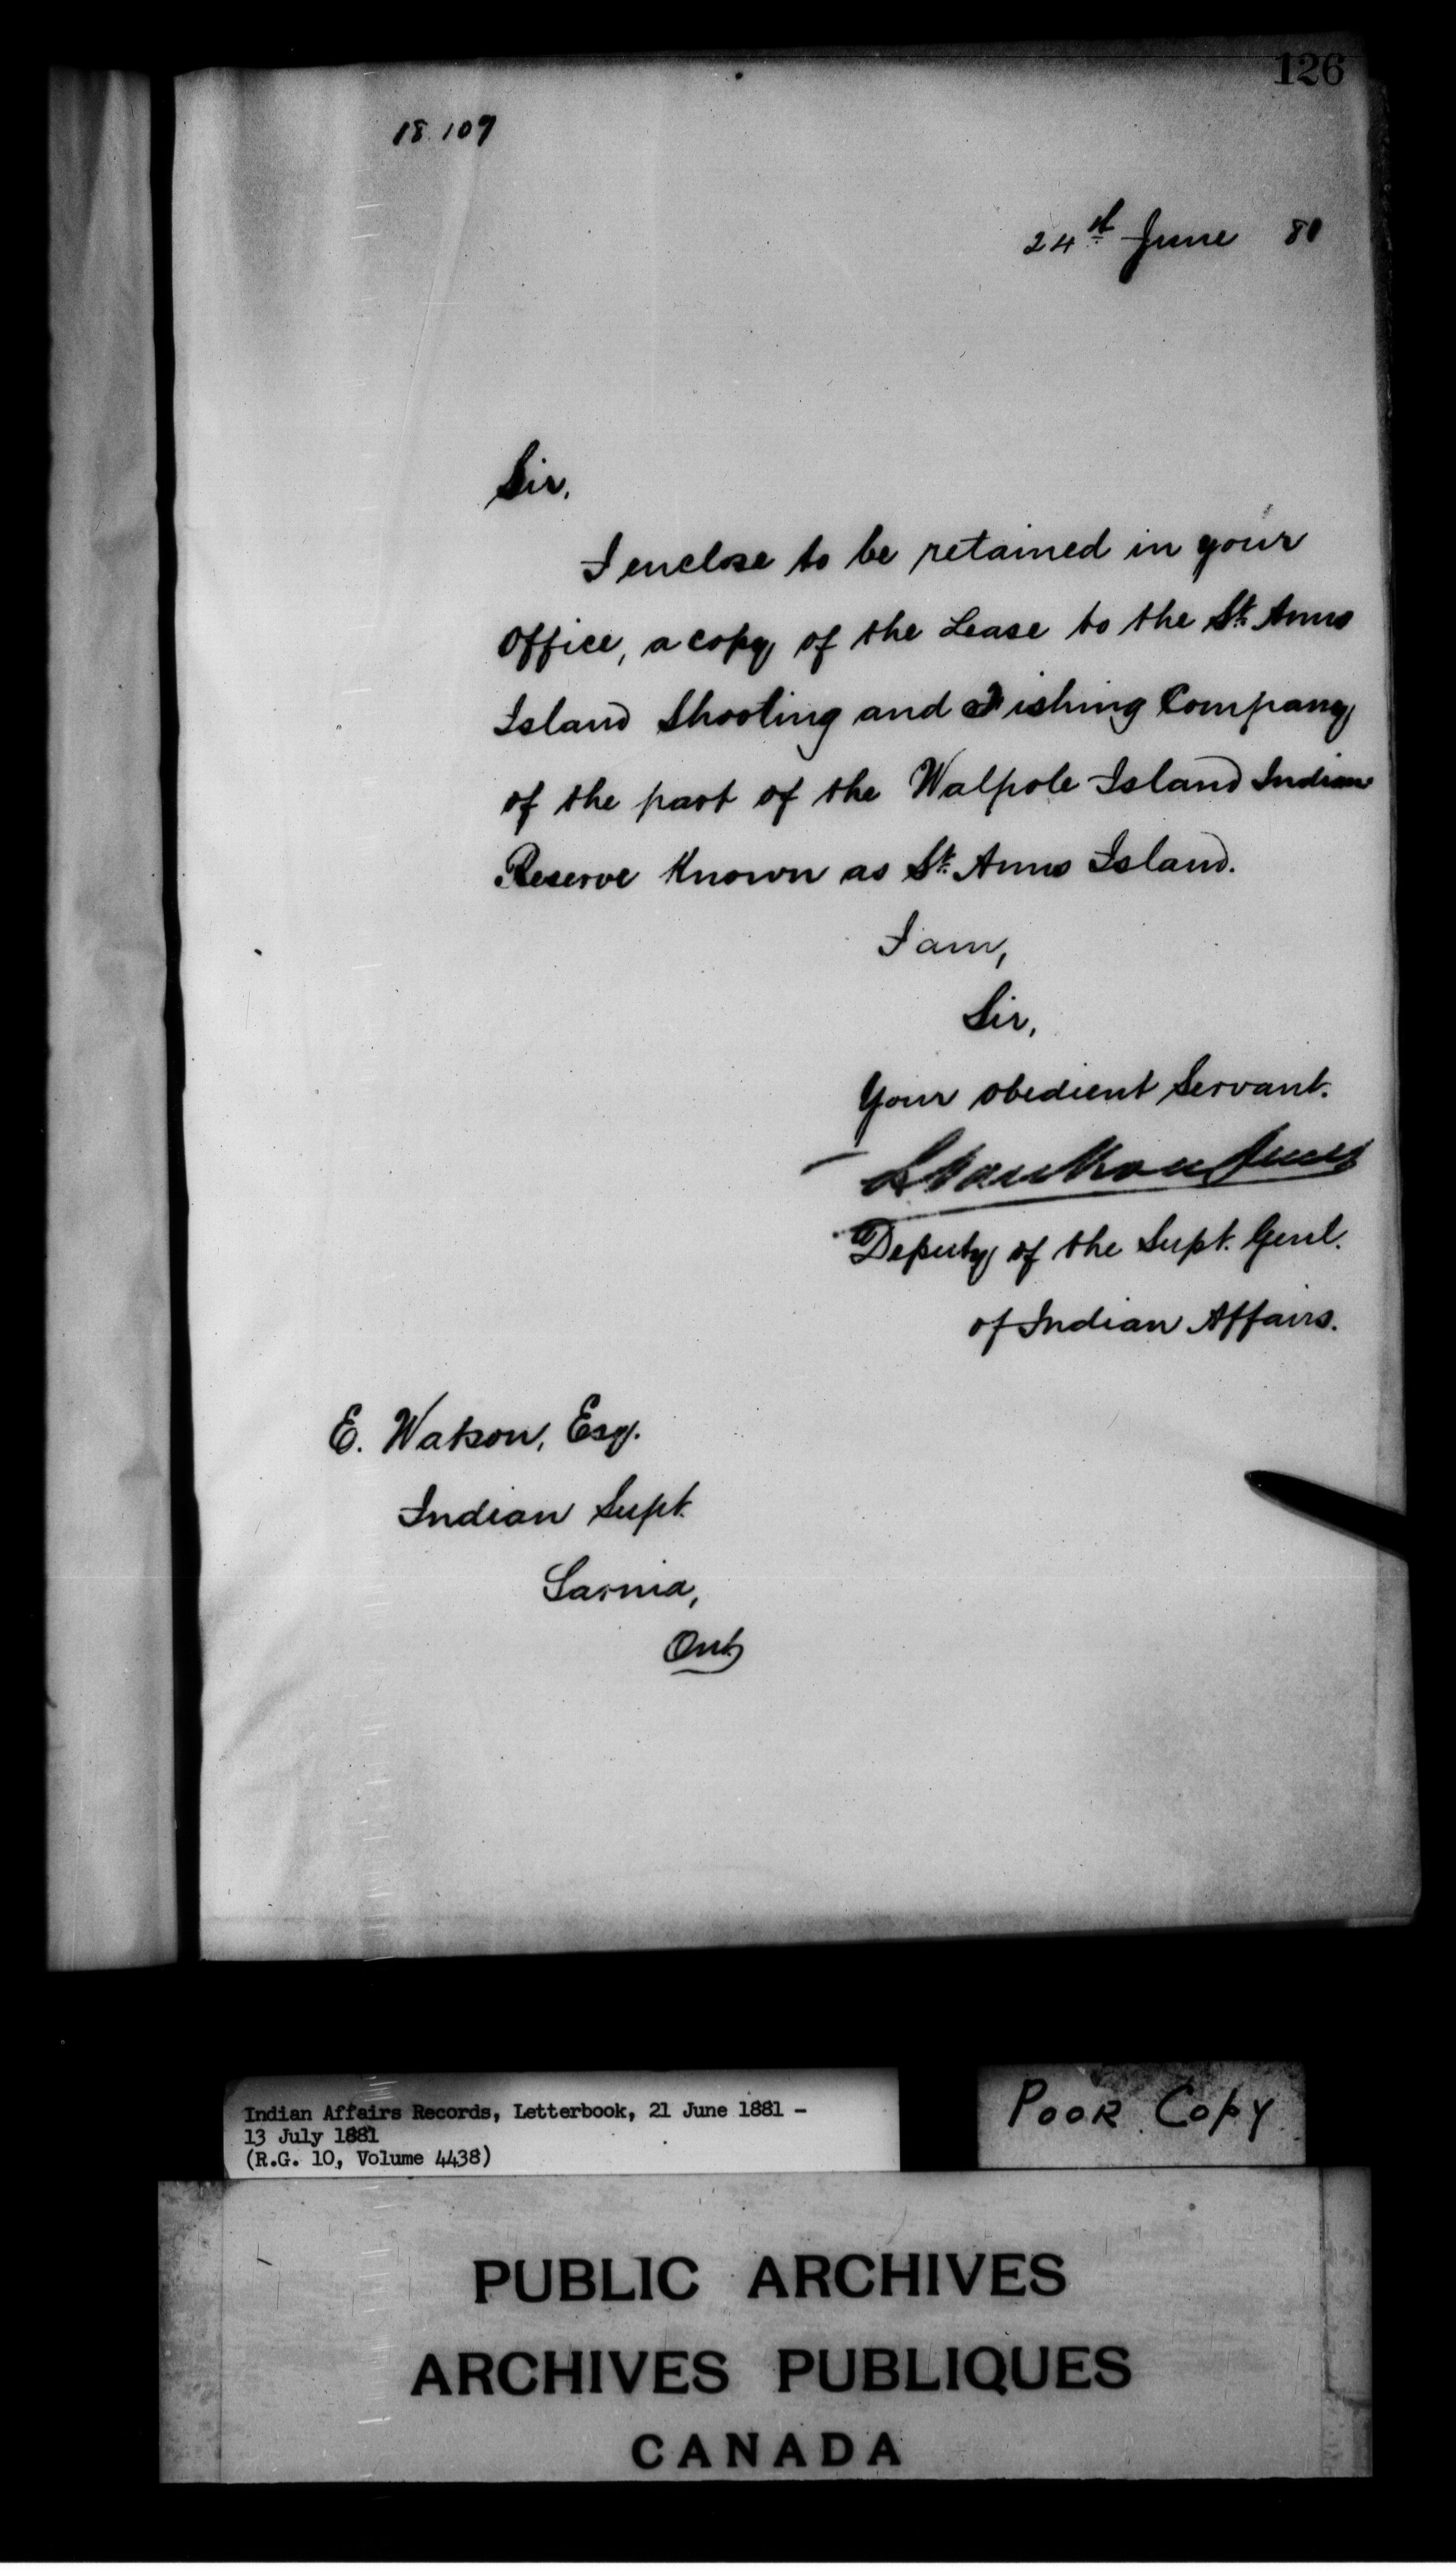 126
18.109
24th June 81
Sir,
I enclose to be retained in your
Office, a copy of the Lease to the St. Anns
Island Shooting and Fishing Company
of the part of the Walpole Island Indian
Reserve Known as St. Anns Island.
I am,
Sir,
Your obedient Servant.
L Vankoughnet
Deputy of the Supt. Genl.
of Indian Affairs.
E. Watson, Esq.
Indian Supt.
Sarnia,
Ont.
Indian Affairs Records, Letterbook, 21 June 1881 -
13 July 1881
(R.G. 10, Volume 4438)
POOR COPY
PUBLIC ARCHIVES
ARCHIVES PUBLIQUES
CANADA